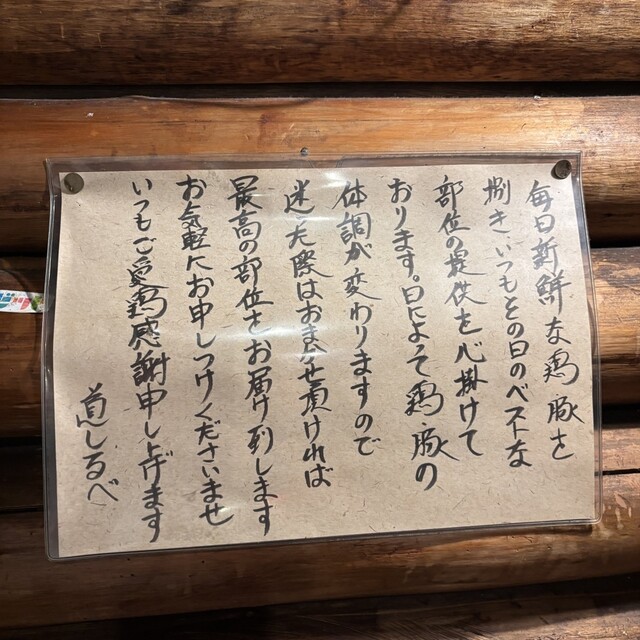 毎日新鮮な鶏豚を
捌き、いつもその日のベストな
部位の提供を心掛けて
おります。日によって鶏豚の
体調が変わりますので
迷った際はおまかせ頂ければ
最高の部位をお届け致します
お気軽にお申しつけくださいませ
いつもご愛鶏感謝申し上げます
道しるべ